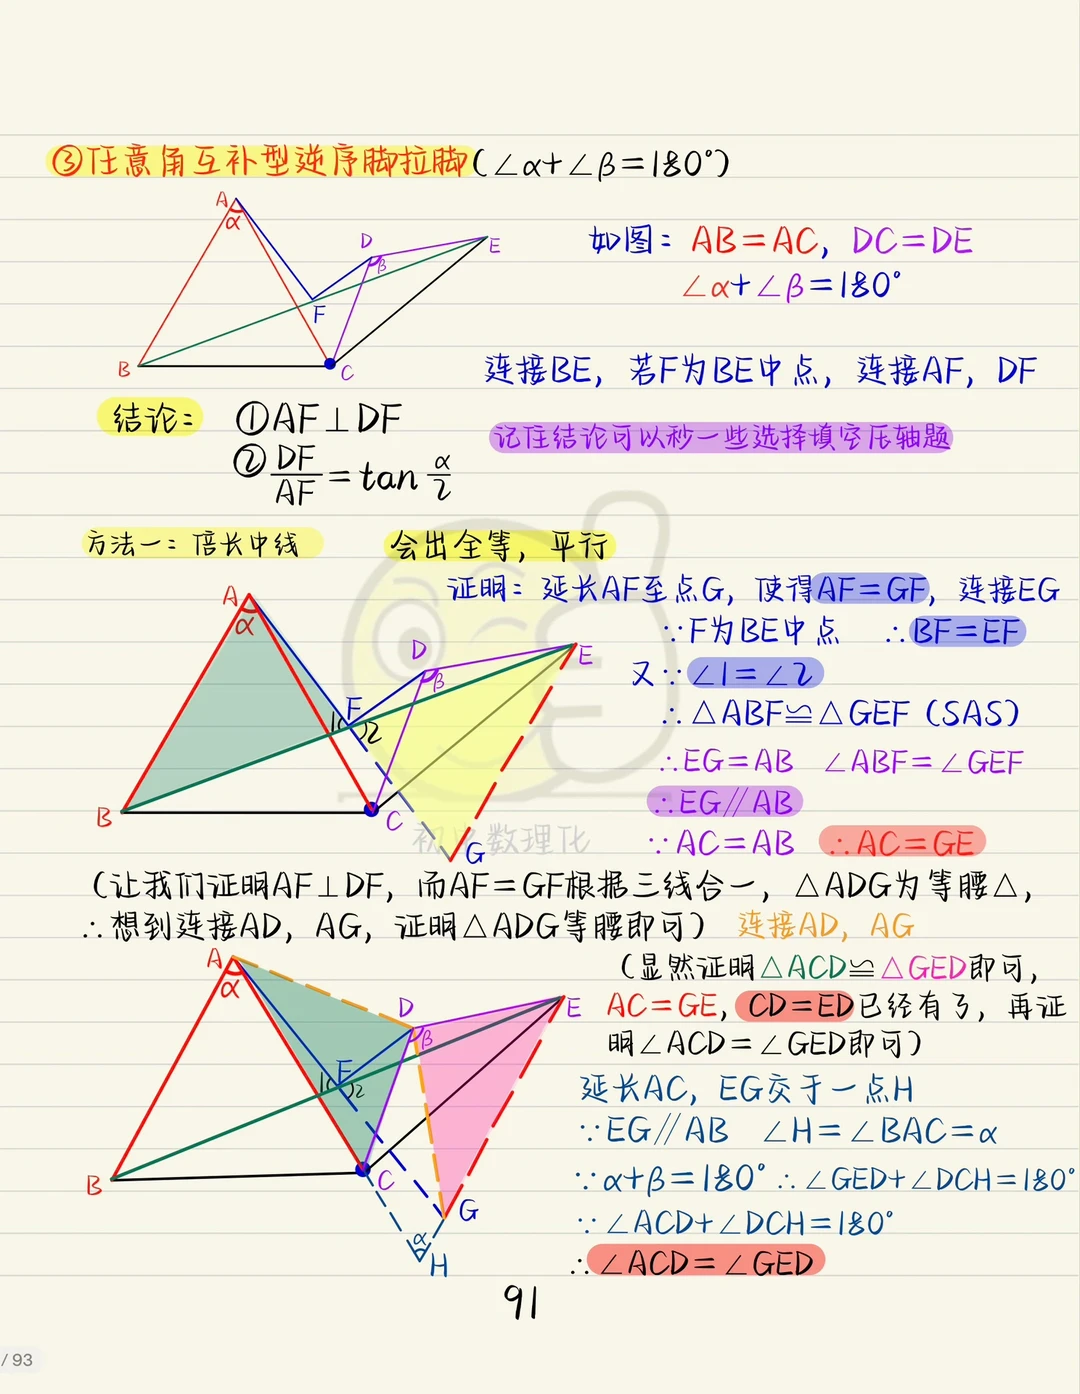 ③任意角互补型逆序脚拉脚(∠α+∠β=180°)
A
α
D
β
E
F
B
C
如图：AB=AC，DC=DE
∠α+∠β=180°
连接BE，若F为BE中点，连接AF，DF
结论：①AF⊥DF
②DF/AF=tan α/2
记住结论可以秒一些选择填空压轴题
方法一：倍长中线 会出全等，平行
证明：延长AF至点G，使得AF=GF，连接EG
∵F为BE中点 ∴BF=EF
又∵∠1=∠2
∴△ABF≌△GEF（SAS）
∴EG=AB ∠ABF=∠GEF
∴EG∥AB
∵AC=AB ∴AC=GE
A
α
D
β
E
F
1
2
B
C
G
初中数理化
（让我们证明AF⊥DF，而AF=GF根据三线合一，△ADG为等腰△，
∴想到连接AD，AG，证明△ADG等腰即可） 连接AD，AG
（显然证明△ACD≌△GED即可，
AC=GE，CD=ED已经有了，再证
明∠ACD=∠GED即可）
延长AC，EG交于一点H
∵EG∥AB ∠H=∠BAC=α
∵α+β=180° ∴∠GED+∠DCH=180°
∵∠ACD+∠DCH=180°
∴∠ACD=∠GED
A
α
D
β
E
F
1
2
B
C
G
α
H
91
/ 93